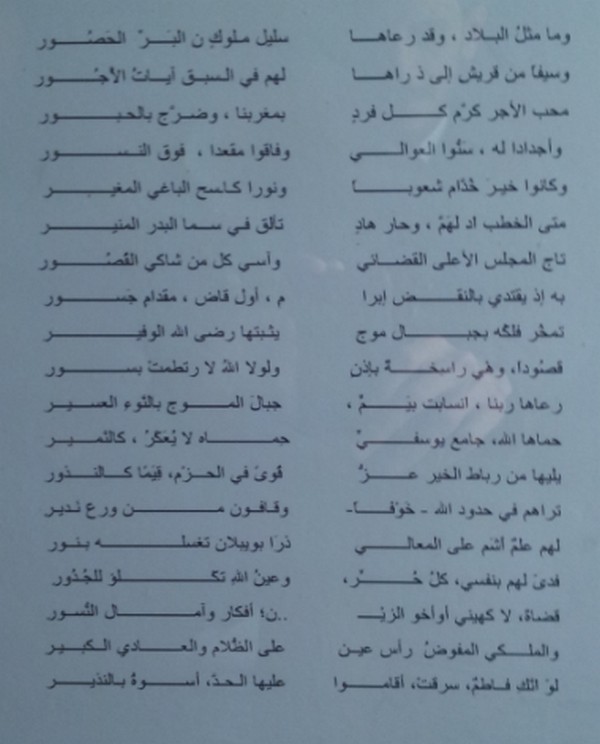 وما مثلُ البلاد ، وقد رعاها سليل ملوك ن البَرّ الحَصُور
وسيفاً من قريش إلى ذراها لهم في السبق آياتُ الأجُور
محب الأجر كرَّم كل فردٍ بمغربنا ، وضرّج بالحبور
وأجدادا له ، سَنُّوا العوالي وفاقوا مقعدا ، فوق النسور
وكانوا خيرَ خُدّام شعوباً ونورا كاسح الباغي المغير
متى الخطب اد لهَمّ ، وحار هادٍ تألق في سما البدر المنير
تاج المجلس الأعلى القضائي وآسي كل من شاكي القُصُور
به إذ يقتدي بالنقض إبرا م ، أول قاض ، مقدام جَسور
تمخُر فلكه بجبال موج يثبتها رضى الله الوفير
قصُودا، وهي راسخة بإذن ولولا اللهُ لا رتطمتْ بسور
رعاها ربنا ، انسابت بيَمٍّ ، جبالَ الموج بالنَوءِ العسير
حماها الله، جامع يوسفيٍّ حماه لا يُعَكَّرُ ، كالنَّمير
يليها من رباط الخير عزٌّ قوىً في الحزْم، قِيَمًا كالنذور
تراهم في حدود الله - خَوْفاً- وقافون من ورع ندير
لهم علمٌ أشم على المعالي ذرَا بويبلان تغسله بنور
فدىً لهم بنفسي، كلُ حُرٍّ، وعينُ اللهِ تكلؤ للجُذُور
قضاة، لا كهيني أواخو الزيْـ ..نِ؛ أفكار وآمال النُّسور
والملكي المفوضُ رأس عين على الظلام والعادي الكبير
لوَ انكِ فاطمٌ، سرقتْ، أقاموا عليها الحدّ، أسوةً بالنذير